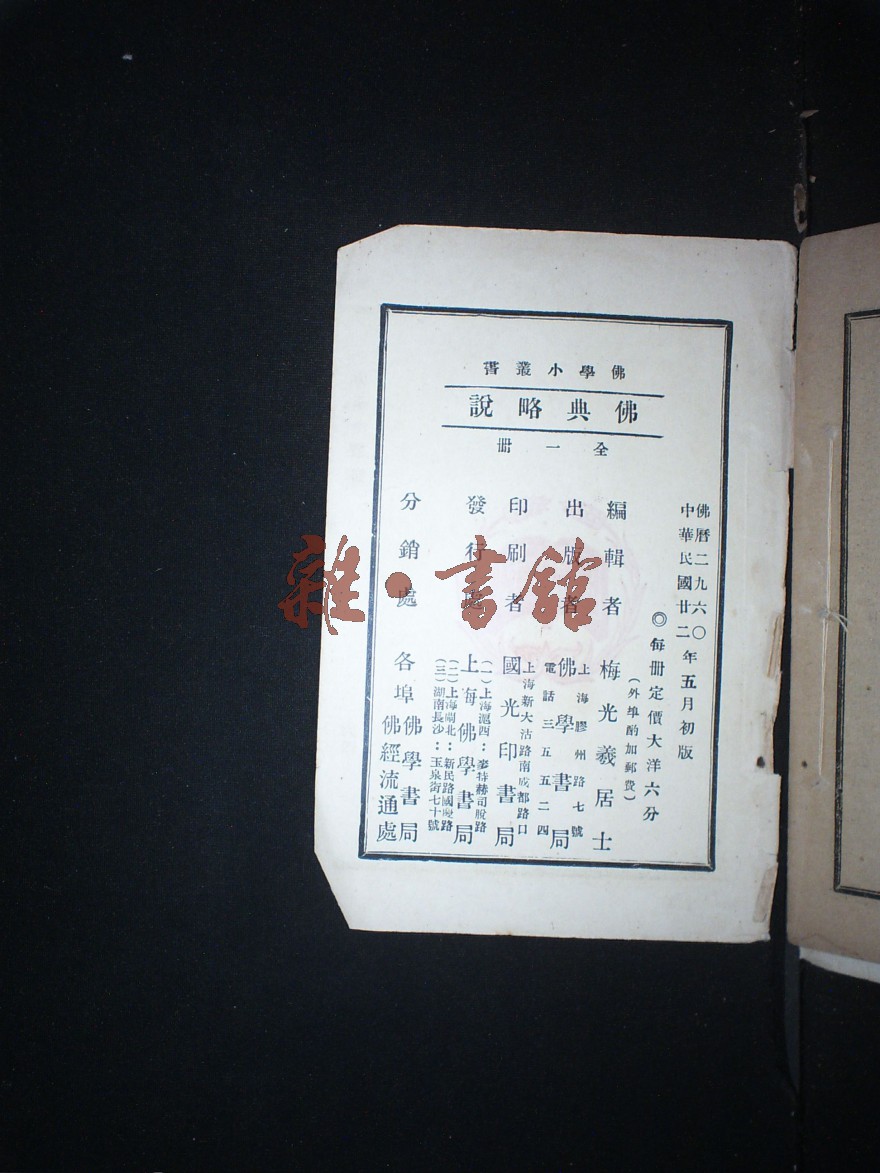 佛學小叢書
佛典略說
全一冊
佛曆二九六〇年五月初版
中華民國廿二年五月初版
◎每冊定價大洋六分
(外埠酌加郵費)
編輯者 梅光羲居士
出版者 佛學書局
上海膠州路七號
電話三五五二四
印刷者 國光印書局
上海新大沽路南成都路口
發行處 上海佛學書局
(一)上海滬西:麥特赫司脫路
(二)上海閘北:新民路國慶路
(三)湖南長沙:玉泉街七十號
分銷處 各埠佛學書局
佛經流通處
雜·書館